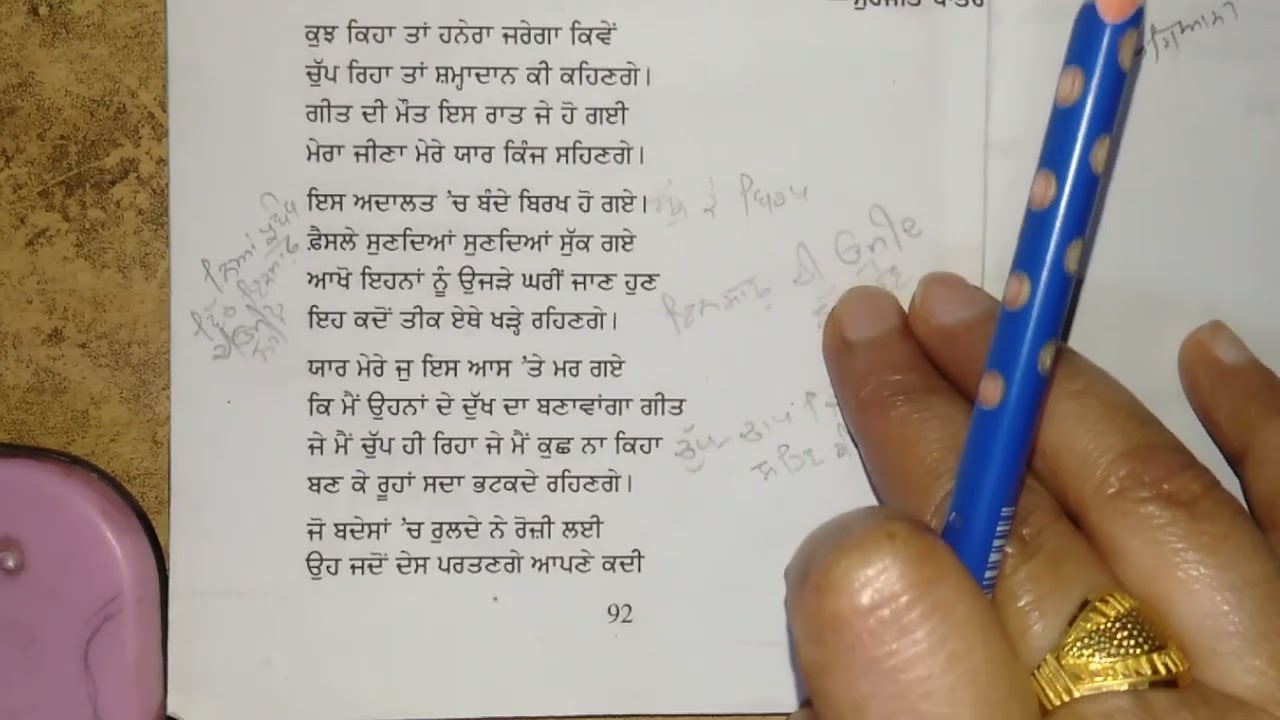 ਕੁਝ ਕਿਹਾ ਤਾਂ ਹਨੇਰਾ ਜਰੇਗਾ ਕਿਵੇਂ
ਚੁੱਪ ਰਿਹਾ ਤਾਂ ਸ਼ਮ੍ਹਾਦਾਨ ਕੀ ਕਹਿਣਗੇ।
ਗੀਤ ਦੀ ਮੌਤ ਇਸ ਰਾਤ ਜੇ ਹੋ ਗਈ
ਮੇਰਾ ਜੀਣਾ ਮੇਰੇ ਯਾਰ ਕਿੰਜ ਸਹਿਣਗੇ।
ਇਸ ਅਦਾਲਤ 'ਚ ਬੰਦੇ ਬਿਰਖ ਹੋ ਗਏ।
ਫ਼ੈਸਲੇ ਸੁਣਦਿਆਂ ਸੁਣਦਿਆਂ ਸੁੱਕ ਗਏ
ਆਖੋ ਇਹਨਾਂ ਨੂੰ ਉਜੜੇ ਘਰੀਂ ਜਾਣ ਹੁਣ
ਇਹ ਕਦੋਂ ਤੀਕ ਏਥੇ ਖੜ੍ਹੇ ਰਹਿਣਗੇ।
ਯਾਰ ਮੇਰੇ ਜੁ ਇਸ ਆਸ 'ਤੇ ਮਰ ਗਏ
ਕਿ ਮੈਂ ਉਹਨਾਂ ਦੇ ਦੁੱਖ ਦਾ ਬਣਾਵਾਂਗਾ ਗੀਤ
ਜੇ ਮੈਂ ਚੁੱਪ ਹੀ ਰਿਹਾ ਜੇ ਮੈਂ ਕੁਛ ਨਾ ਕਿਹਾ
ਬਣ ਕੇ ਰੂਹਾਂ ਸਦਾ ਭਟਕਦੇ ਰਹਿਣਗੇ।
ਜੋ ਬਦੇਸਾਂ 'ਚ ਰੁਲਦੇ ਨੇ ਰੋਜ਼ੀ ਲਈ
ਉਹ ਜਦੋਂ ਦੇਸ ਪਰਤਣਗੇ ਆਪਣੇ ਕਦੀ
92